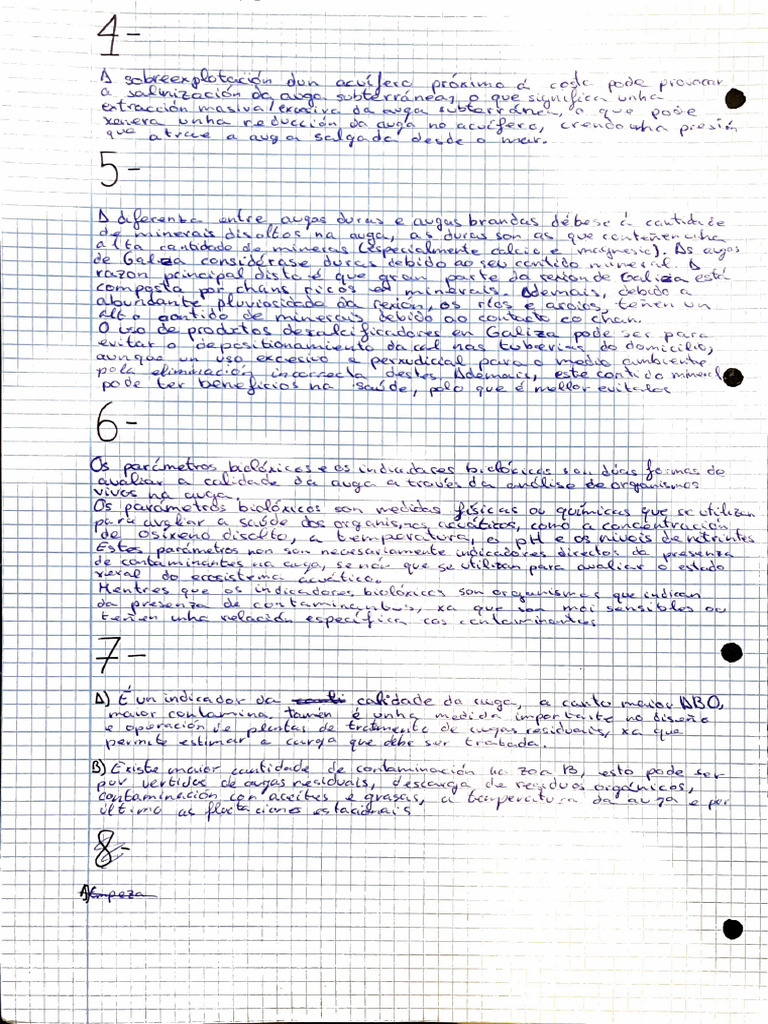 4-
A sobreexplotación dun acuífero próximo á costa pode provocar
a salinización da auga subterránea, o que significa unha
extracción masiva/excesiva da auga subterránea, o que pode
xenera unha reducción da auga no acuífero, creando unha presión
que atrae a auga salgada desde o mar.
5-
A diferenza entre augas duras e augas brandas débese á cantidade
de minerais disoltos na auga, as duras son as que conteñen unha
alta cantidade de mineras (especialmente calcio e magnesio). As augas
de Galiza considérase duras debido ao seu contido mineral. A
razon principal disto é que gran parte da rexion de Galiza está
composta por chans ricos en minerais. Ademais, debido a
abundante pluviosidade da rexión, os ríos e arroios, teñen un
alto contido de minerais debido ao contacto co chan.
O uso de productos descalcificadores en Galiza pode ser para
evitar o depositionamento da cal nas tuberías do domicilio,
aunque un uso excesivo é perxudicial para o medio ambiente
pola eliminación incorrecta destes. Ademais, este contido mineral
pode ter beneficios na saúde, polo que é mellor evitalos
6-
Os parámetros biolóxicos e os indicadores biolóxicos son dúas formas de
avaliar a calidade da auga a través da análise de organismos
vivos na auga.
Os parámetros biolóxicos son medidas físicas ou químicas que se utilizan
para avaliar a saúde dos organismos acuáticos, como a concentración
de osíxeno disolto, a temperatura, o pH e os niveis de nutrintes
Estes parámetros non son necesariamente indicadores directos da presenza
de contaminantes na auga, se non que se utilizan para avaliar o estado
xeral do ecosistema acuático.
Mentres que os indicadores biolóxicos son organismos que indican
da presenza de contaminantes, xa que son moi sensibles ou
teñen unha relación específica cos contaminantes
7-
A) É un indicador da calidade da auga, a canto maior DBO,
maior contamina. tamén é unha medida importante no diseño
e operación de plantas de tratamento de augas residuais, xa que
permite estimar a carga que debe ser tratada.
B) Existe maior cantidade de contaminación na zoa B, esto pode ser
por vertidos de augas residuais, descarga de residuos orgánicos,
contaminación con aceites e grasas, a temperatura da auga e por
último as fluctacions estacionais
8-
A) Empeza